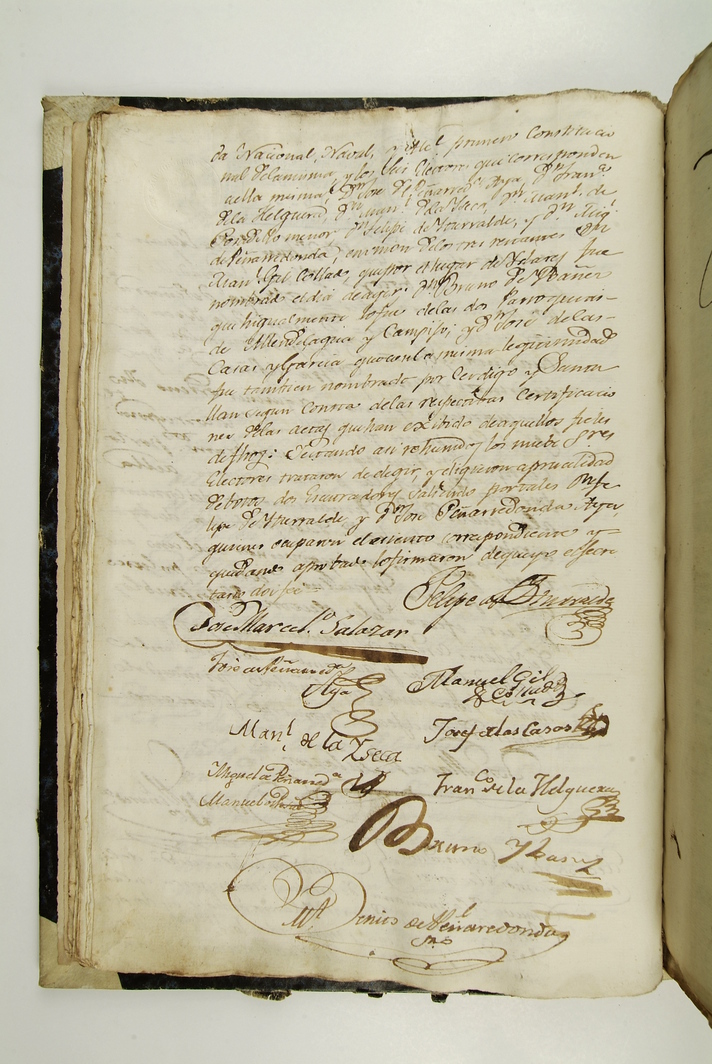 da Nacional, Naval, y del primero Constitucio
nal de la misma, y los seis Electores que corresponden
a ella misma, Dn Jose de Peñarredda Agà, Dn Franco
de la Helguera, Dn Manl de la Yseca, Dn Manl de
menor, Dn Felipe de Yturralde, y Dn Migl
de Peñarredonda, en union de los tres restantes Dn
Manl Gil Collado, qe por el lugar de fue
nombrado el dia de ayer; Dn Bruno de Ybañez
que higualmente lo fue de las dos Parroquias
de Mendelagua y Campijo; y Dn Jose de las
Casas y Garcia que con la misma legitimidad
fue tambien nombrado por Cerdigo y Santa
llan segun consta de las respectivas Certificacio
nes de las actas que han exibido de aquellos fieles
de fhos: Estando asi rehunidos los nuebe Sres
Electores trataron de elegir, y eligieron a pluralidad
de botos dos Escutadores saliendo por tales Dn Fe
lipe de Yturralde y Dn Jose Peñarredonda Agà
quienes ocuparon el asiento correspondiente y
quedando aprobado lo firmaron de que yo el secre
tario doi fee
Felipe de Yturralde
Jose Marcel.o Salazar
Jose de Peñarreda
Agà
Manuel Gil
de Collado
Manl de la Yseca
Josef de las Casas
Miguel de Peñarrda
Franco de la Helguera
Manuel de
Bruno Ybañez
Benito de Peñarredonda